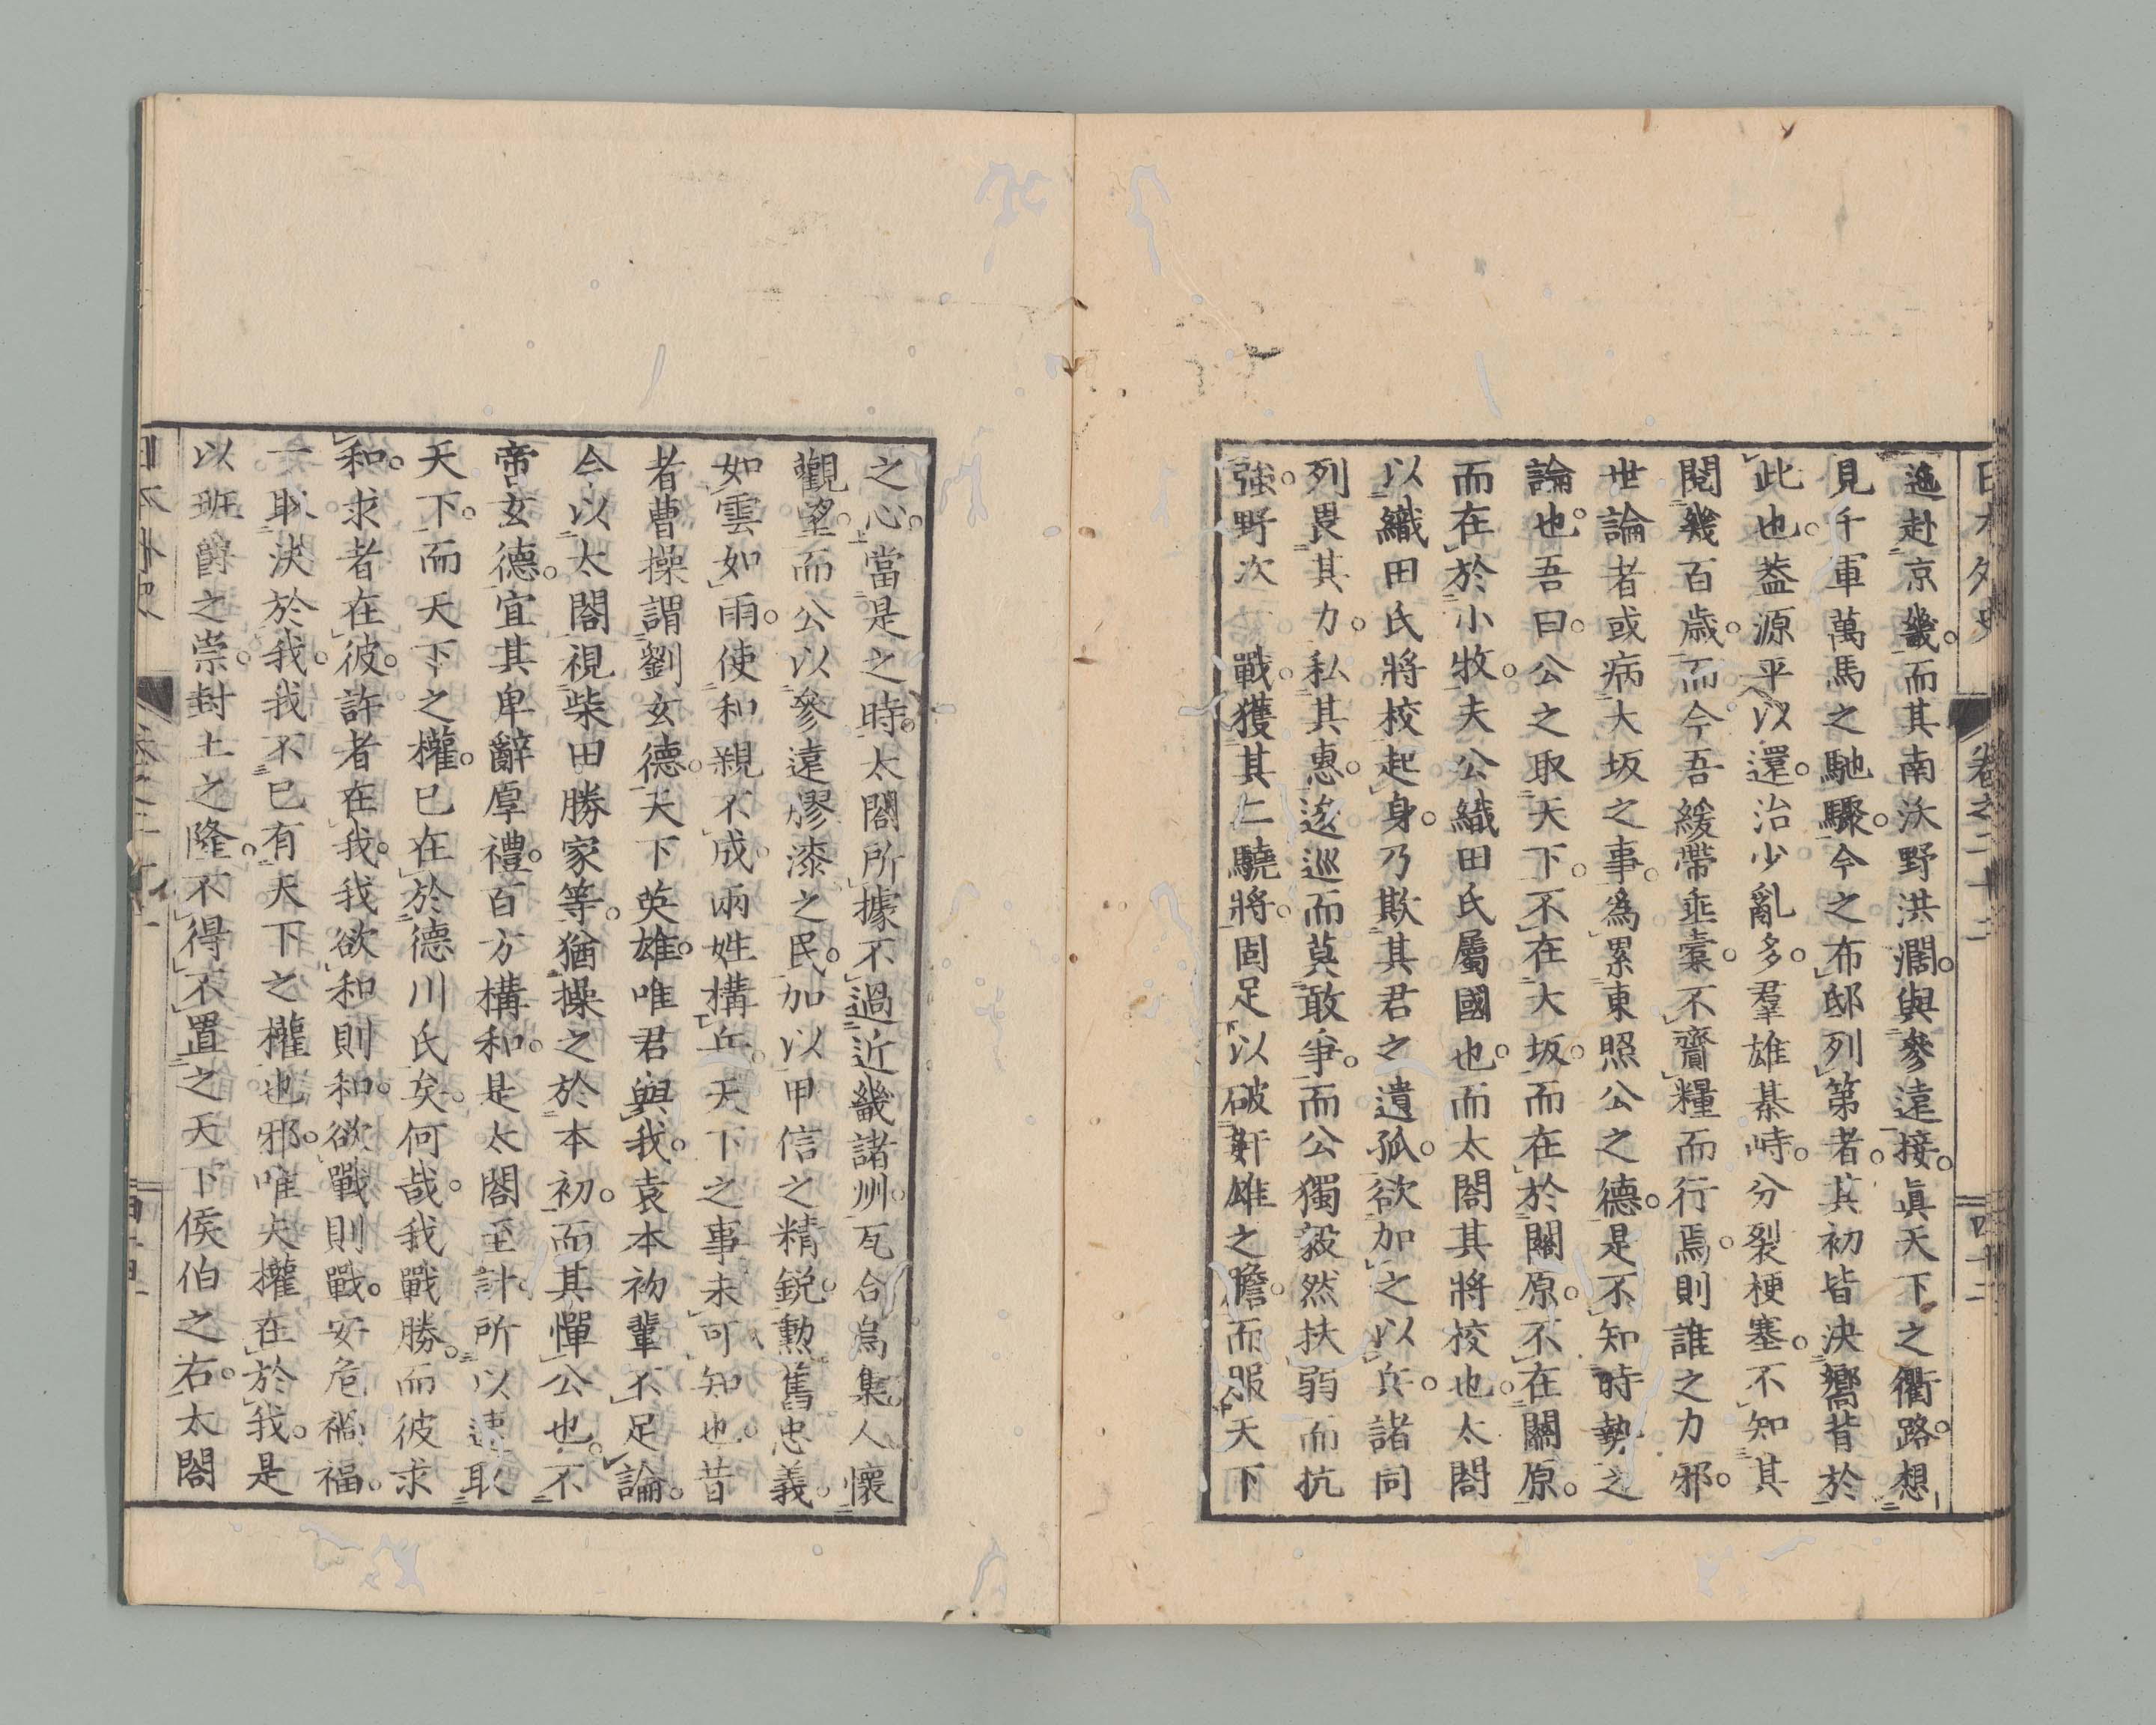 日本外史 卷之二十二 四十二
迤赴京畿。而其南沃野洪濶。與參遠接。眞天下之衢路。想
見千軍萬馬之馳驟。今之布邸列第者。其初皆決嚮背於
此也。葢源平以還。治少亂多。羣雄棊峙。分裂梗塞。不知其
閱幾百歲。而今吾緩帶垂橐。不齎糧而行焉。則誰之力邪。
世論者或病大坂之事。爲累東照公之德。是不知時勢之
論也。吾曰。公之取天下。不在大坂。而在於關原。不在關原。
而在於小牧。夫公織田氏屬國也。而太閤其將校也。太閤
以織田氏將校起身。乃欺其君之遺孤。欲加之以兵。諸同
列畏其力。私其惠。逡巡而莫敢爭。而公獨毅然扶弱而抗
強。野次一戰。獲其仁驍將。固足以破奸雄之膽。而服天下
之心。當是之時。太閤所據不過近畿諸州。瓦合烏集。人懷
觀望。而公以參遠膠漆之民。加以甲信之精銳。勲舊忠義。
如雲如雨。使和親不成。兩姓構兵。天下之事未可知也。昔
者曹操謂劉玄德。天下英雄。唯君與我。袁本初輩不足論。
今以太閤視柴田勝家等。猶操之於本初。而其憚公也。不
啻玄德。宜其卑辭厚禮。百方構和。是太閤至計。所以速取
天下。而天下之權。已在於德川氏矣。何哉。我戰勝。而彼求
和。求者在彼。許者在我。我欲和則和。欲戰則戰。安危禍福。
一取決於我。我不已有天下之權也邪。唯夫權在於我。是
以班爵之崇。封土之隆。不得不置之天下侯伯之右。太閤
日本外史